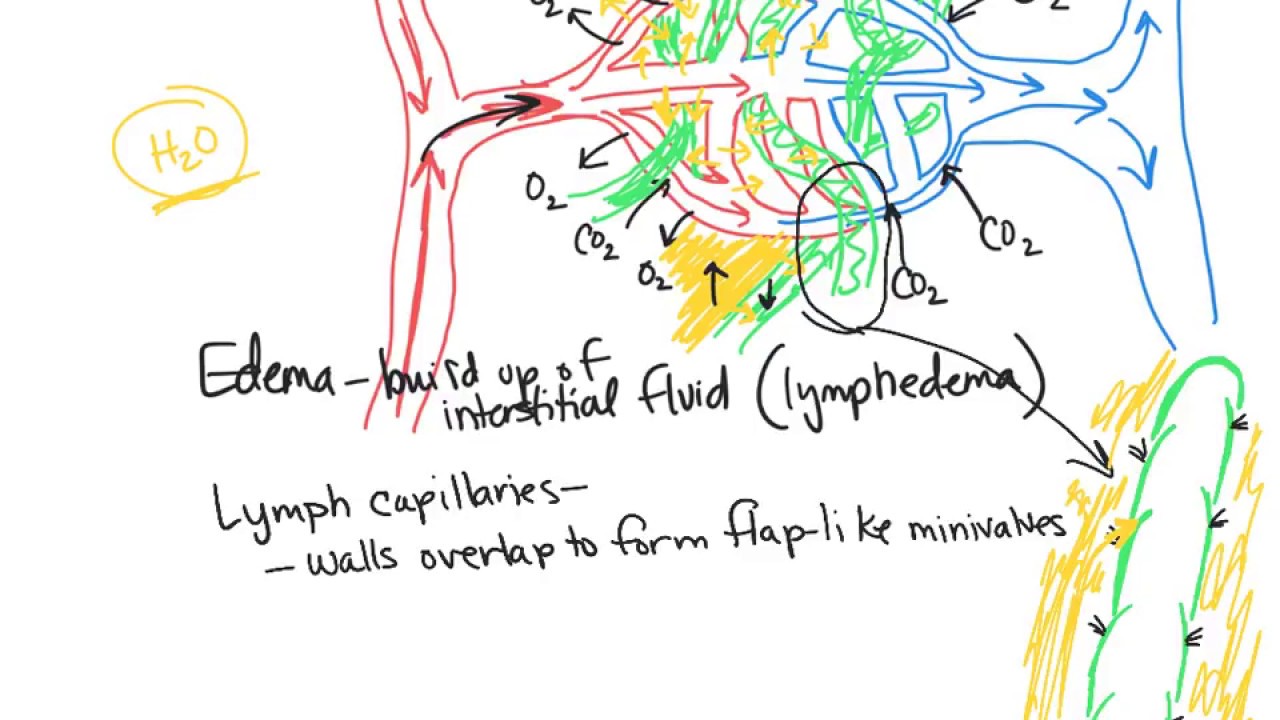 O2
O2
H2O
O2
CO2
CO2
O2
CO2
Edema – build up of
interstitial fluid (lymphedema)
Lymph capillaries–
– walls overlap to form flap-like minivalves